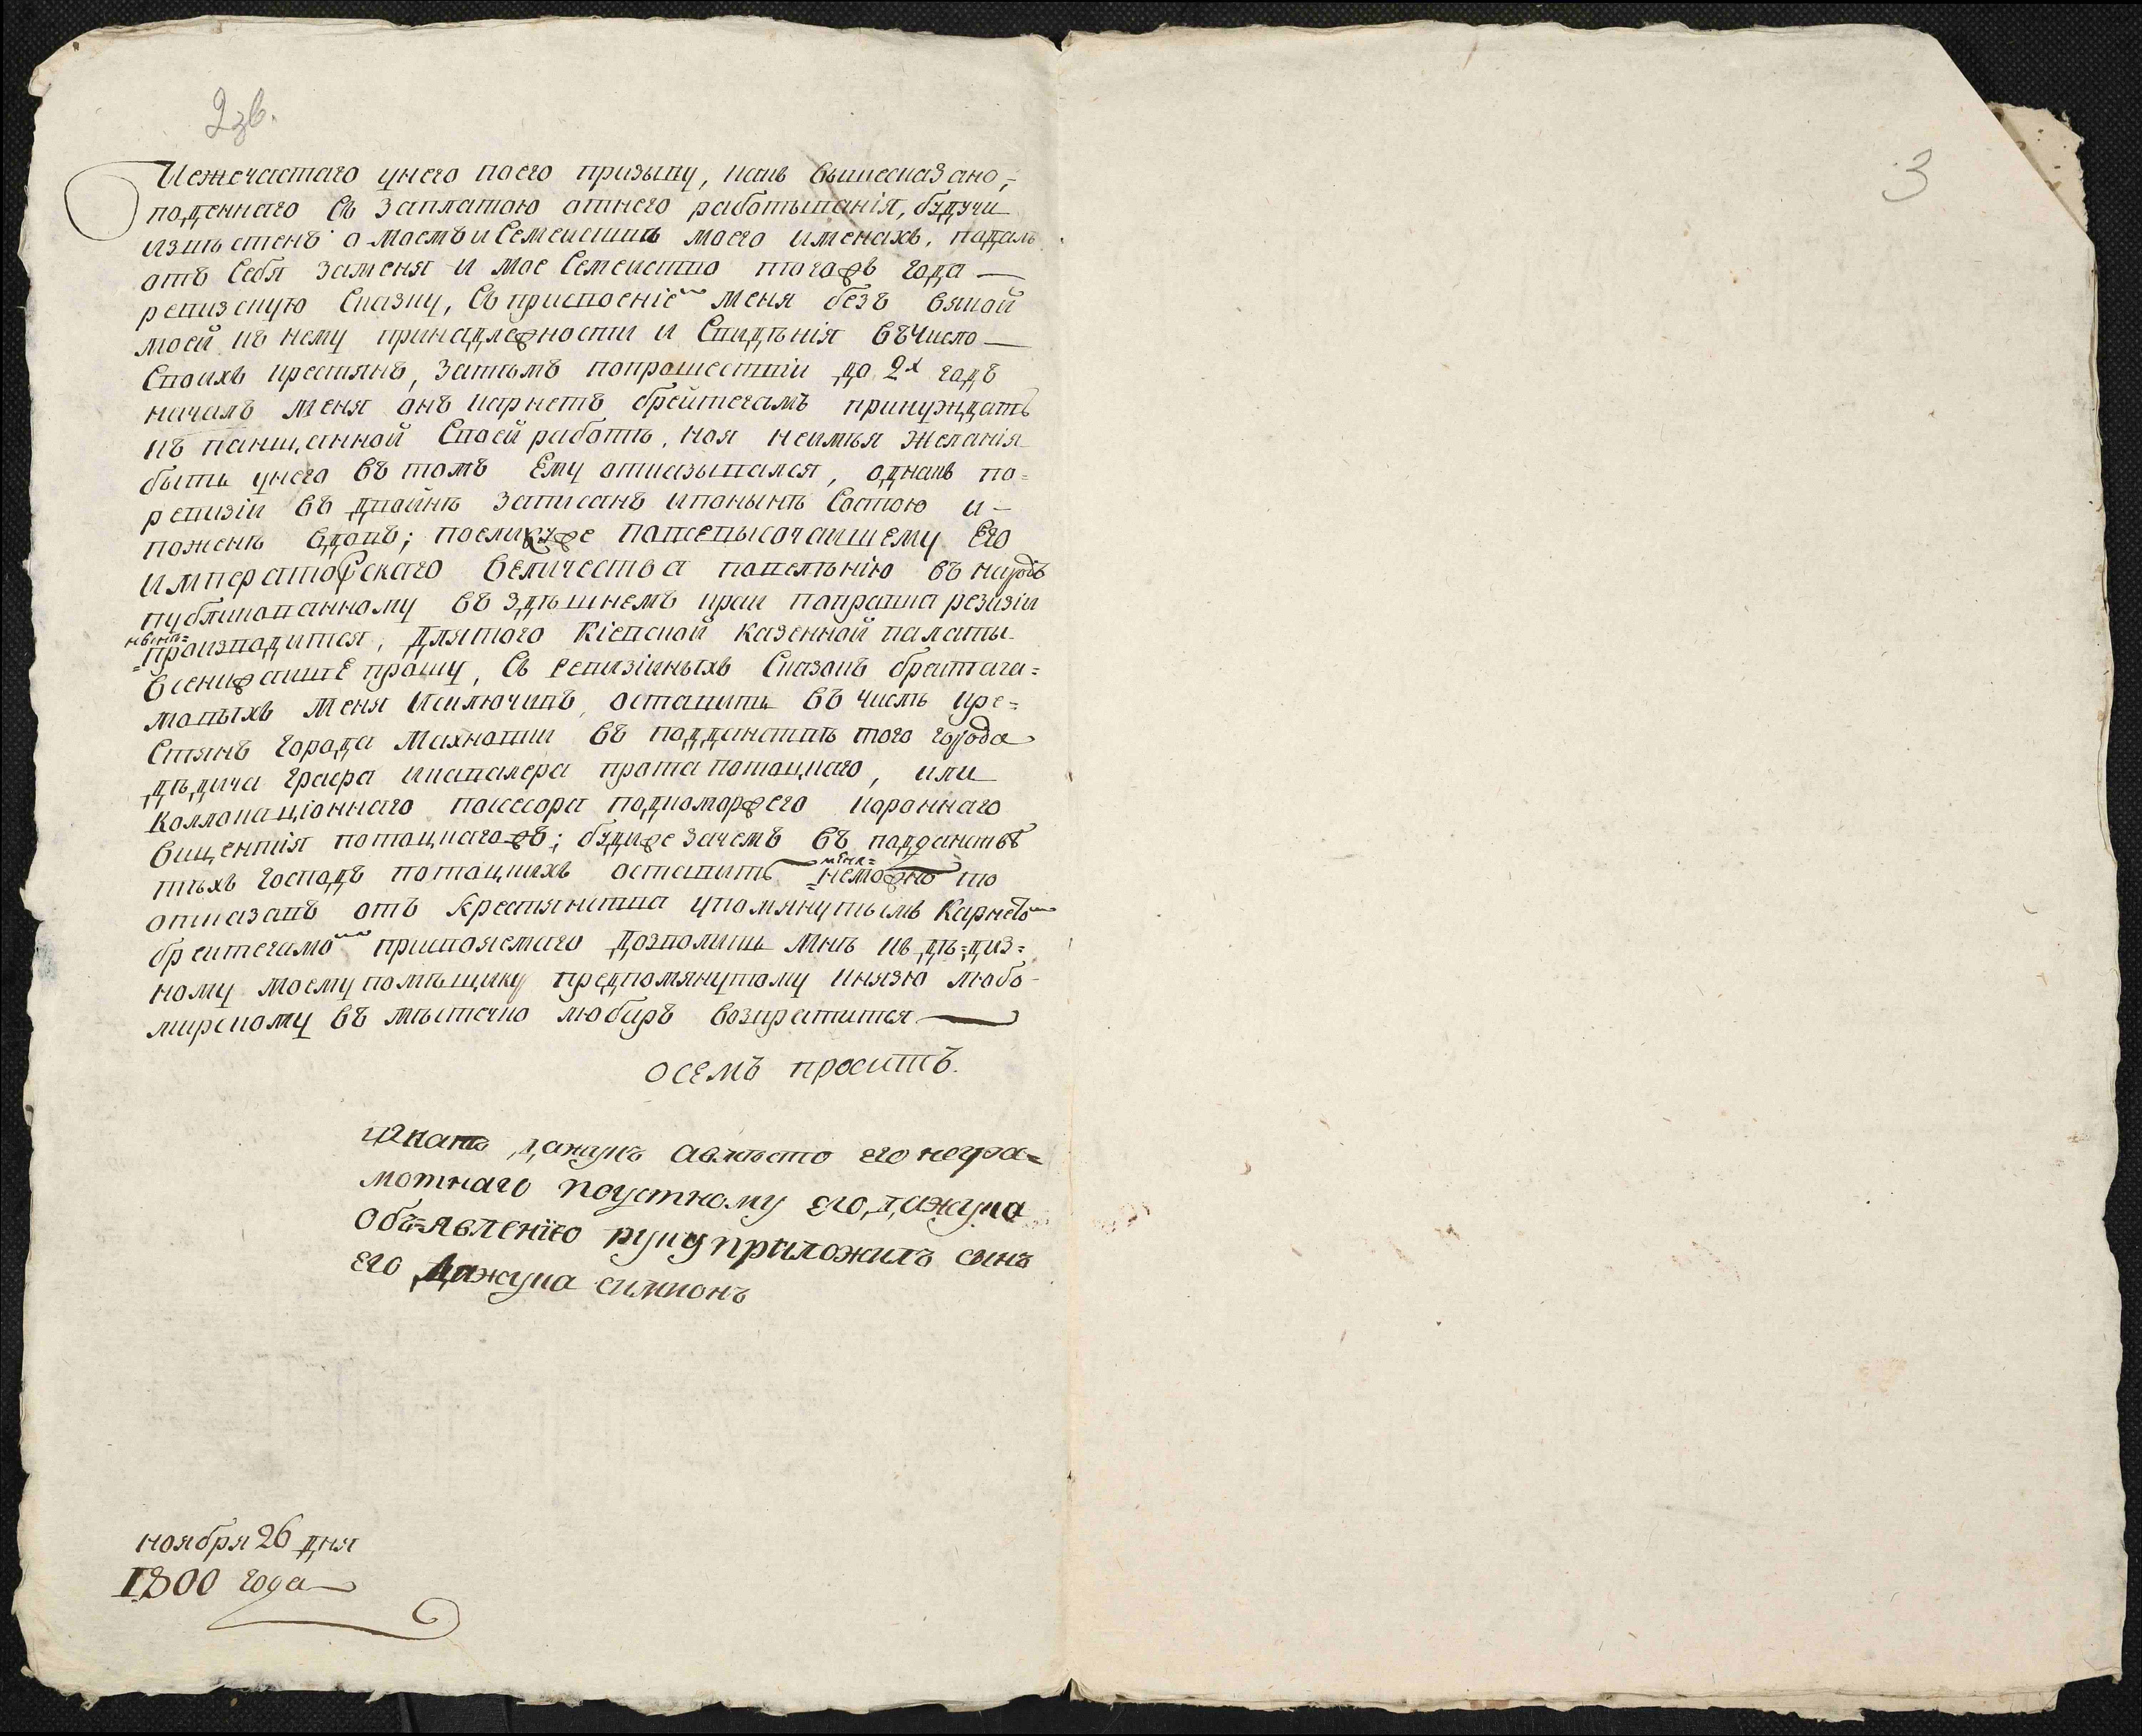 2зв.
3
Ижечастаго унего поего призыву, какъ вышесказано,
поденнаго съ заплатою отнего работыванія, будучи
извѣстенъ о моемъ и Семейства моего именахъ, подалъ
отъ себя заменя и мое Семейство тогожъ года
ревизскую сказку, съ присвоеніем меня безъ всякой
моей къ нему принадлежности и свидѣнія въ число
своихъ крестянъ, затѣмъ попрошествіи до 2х годъ
началъ меня онъ карнетъ брейтегамъ принуждать
къ панщанной своей работѣ, ноя неимѣя желанія
быть унего въ томъ ему отказывался, однакъ по=
ревизіи въ двойнѣ записанъ ипонынѣ состою и
поженѣ вдовъ; посликуже повсевысочайшему его
императорскаго величества повелѣнію въ народъ
публикованному въ здѣшнемъ краи попраша резизіи
нынѣ=
=производится, длятого кіевской казенной палаты
всенижайше прошу, съ ревизійныхъ сказокъ братага=
мовыхъ меня исключивъ, оставить въ числѣ кре=
стянъ города махновки въ подданствѣ того города
дѣдича графа икавалера прота потоцкаго, или
коллокаціоннаго посесора подкоморжего короннаго
вицентія потоцкагожъ; будиже зачемъ въ подданствѣ
тѣхъ господъ потоцкихъ оставить меня= =неможно то
отказавъ отъ крестянства упомянутымъ карнетом
брейтегамом присвояемаго дозволить мнѣ къ дѣ=диз=
ному моему помѣщику предпомянутому князю любо=
мирскому въ мѣстечко любаръ возвратится
осемъ проситъ.
игнатъ дажукъ авмѣсто его негра=
мотнаго поустному его, дажука
объ=явленію руку приложилъ сынъ
его дажука симионъ
ноября 26 дня
1800 года